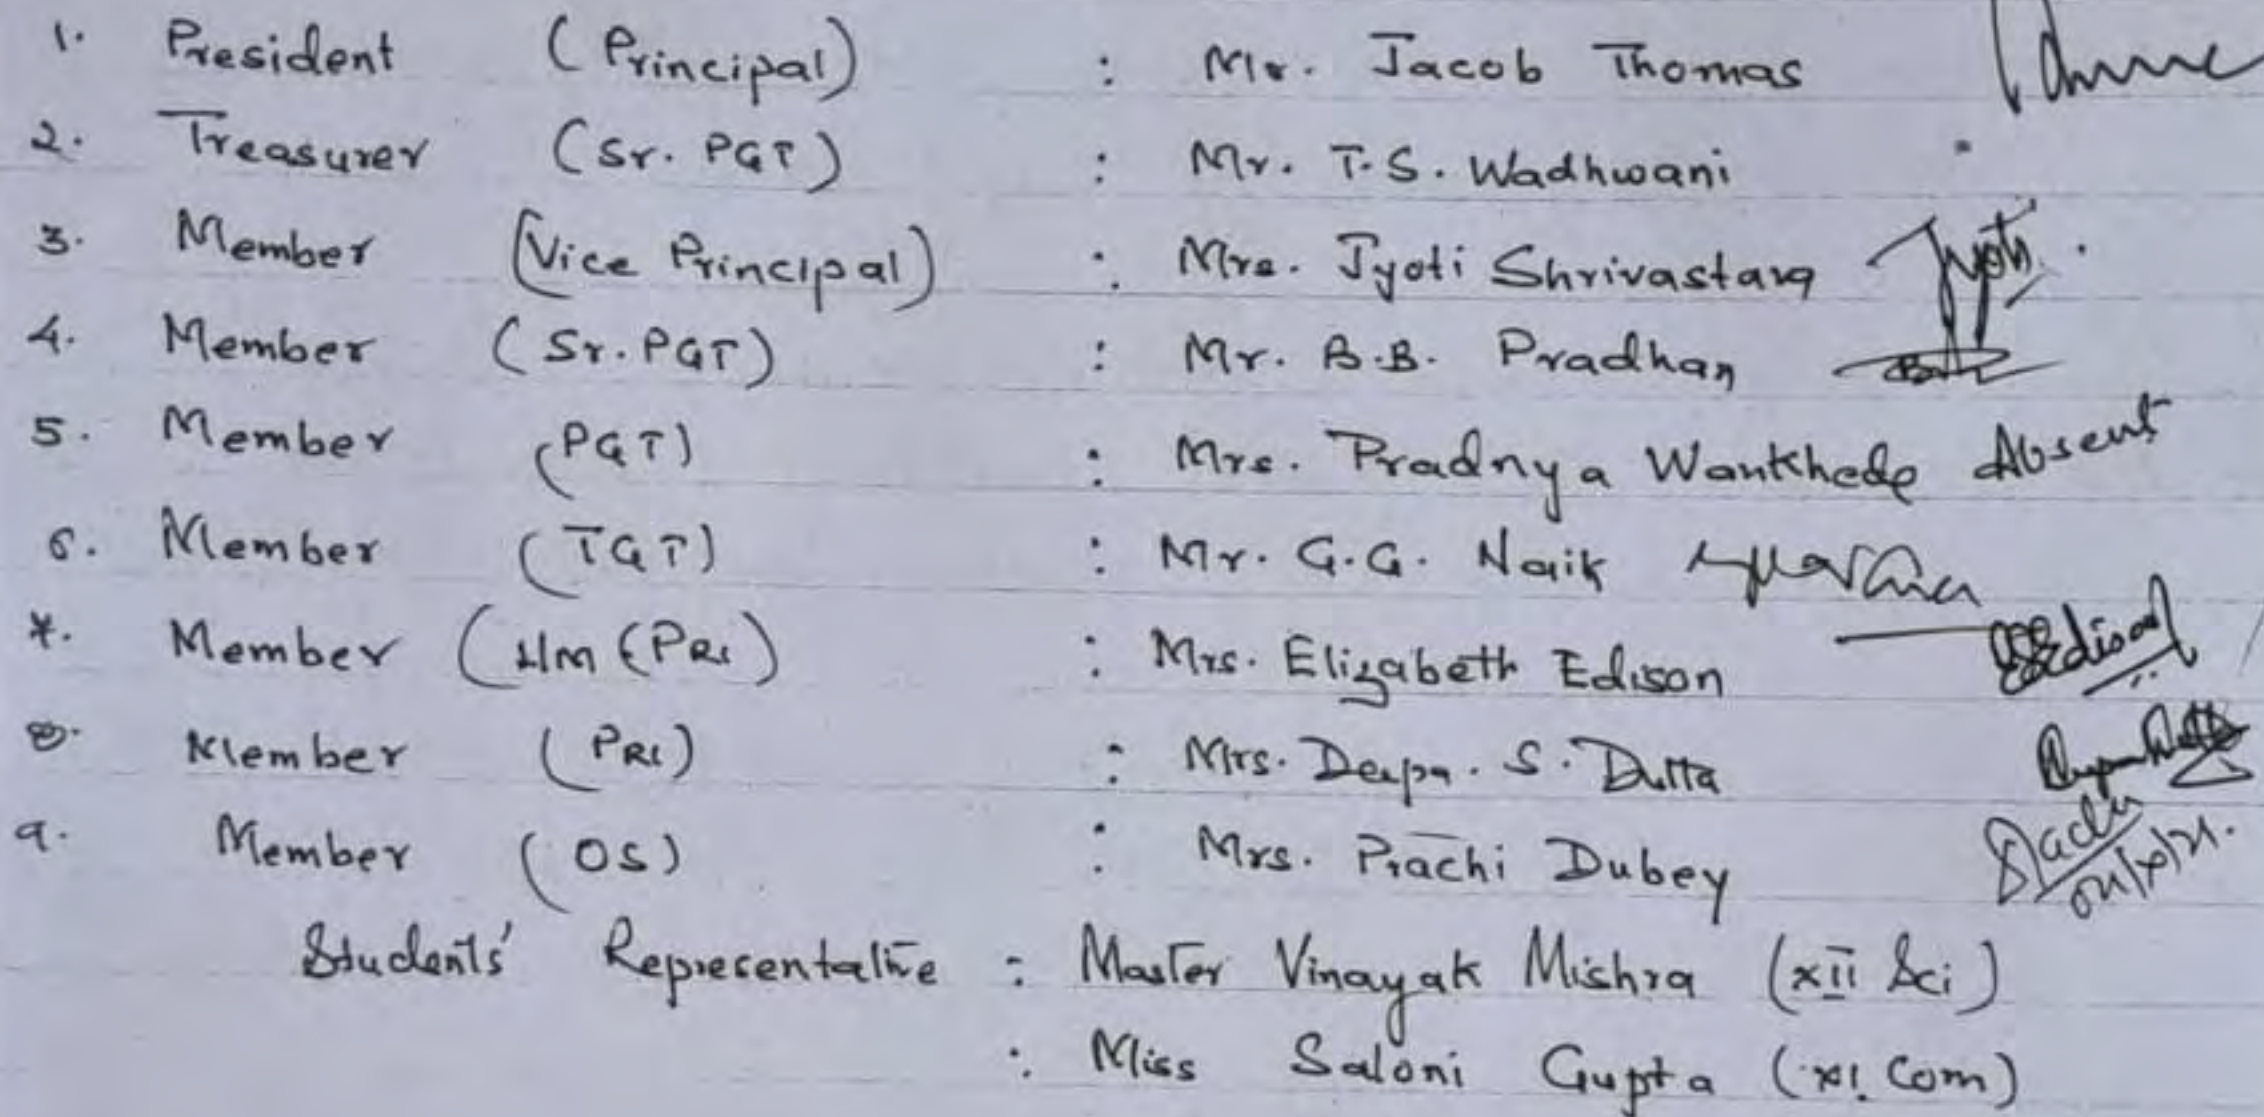 1. President (Principal) : Mr. Jacob Thomas
2. Treasurer (Sr. PGT) : Mr. T.S. Wadhwani
3. Member (Vice Principal) : Mrs. Jyoti Shrivastava Jyoti
4. Member (Sr. PGT) : Mr. B.B. Pradhan
5. Member (PGT) : Mrs. Pradnya Wankhede Absent
6. Member (TGT) : Mr. G.G. Naik
7. Member (HM (PRI) : Mrs. Elizabeth Edison EEdison
8. Member (PRI) : Mrs. Deepa. S. Dutta
9. Member (OS) : Mrs. Prachi Dubey
Students' Representative : Master Vinayak Mishra (XII Sci)
: Miss Saloni Gupta (XI. Com)